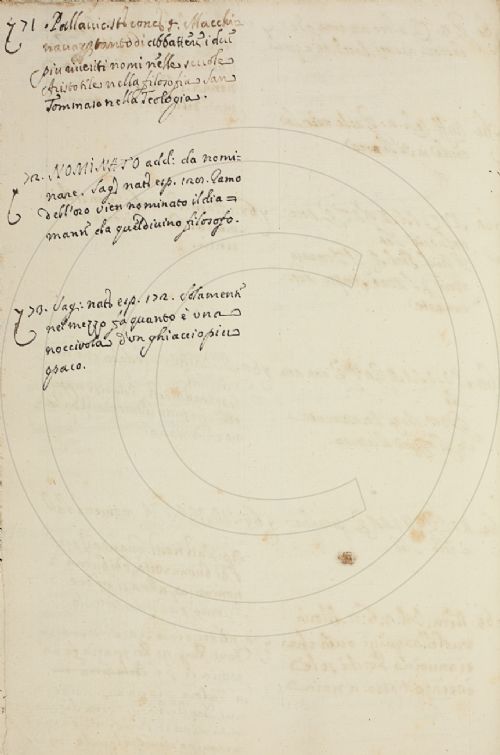 71. Pallavic. st. conc. 9. Macchi=
navan tanto di abbattere i due
più riveriti nomi nelle scuole
Aristotile nella filosofia San
Tommaso nella Teologia.
72. NOMINATO add: da nomi-
nare. Sag. nat. esp. 120. Ramo
dell'oro vien nominato il dia=
mante da quel divino filosofo.
73. Sag: nat. esp. 172. Solamente
nel mezzo fa quanto è una
nocciuola d'un ghiaccio più
opaco.